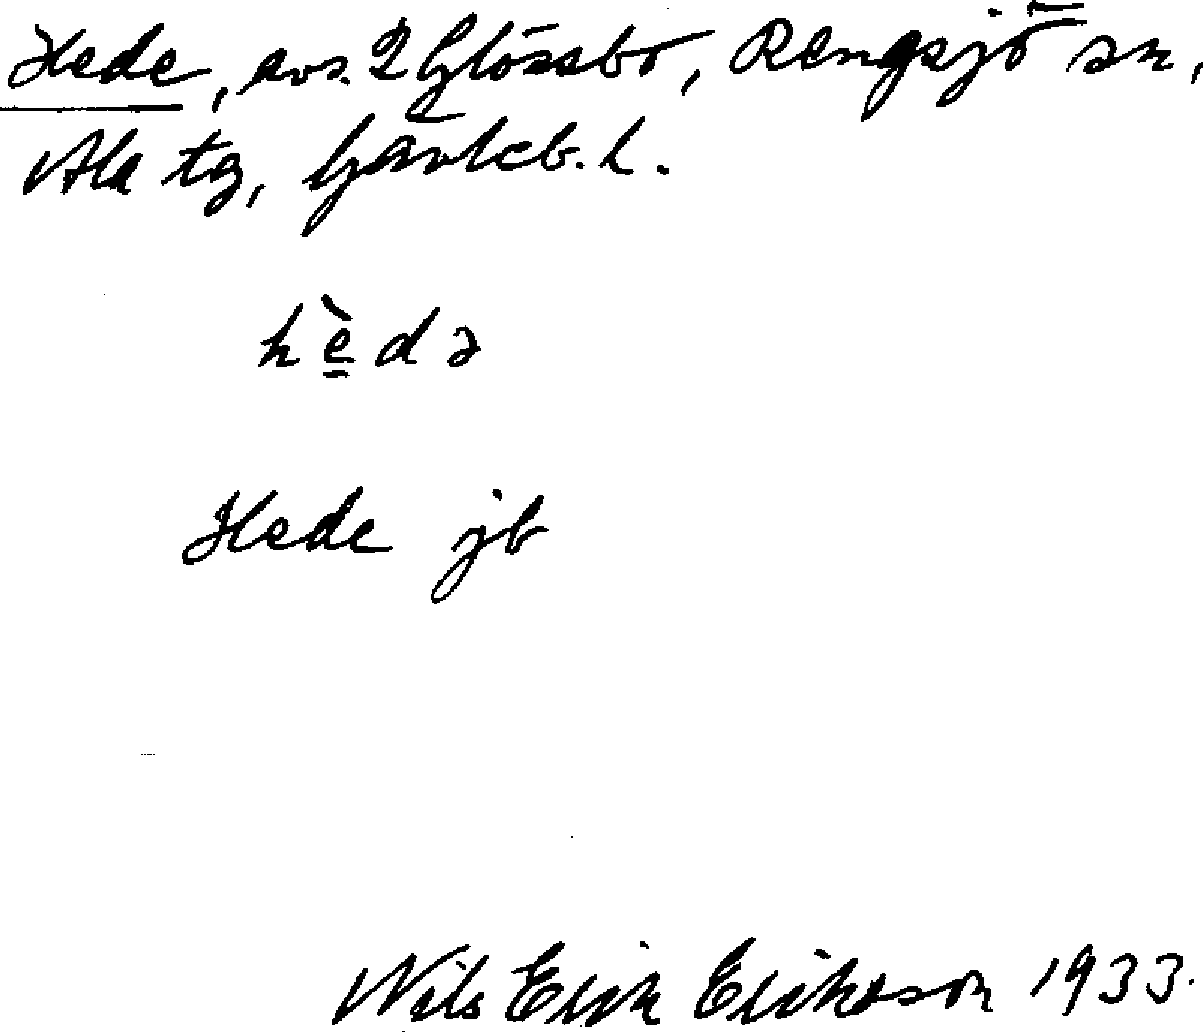 Hede, avs. 2 Glössbo, Rengsjö sn,
Ala tg, Gävleb. l.
hè̱də
Hede jb
Nils Erik Erikson 1933.